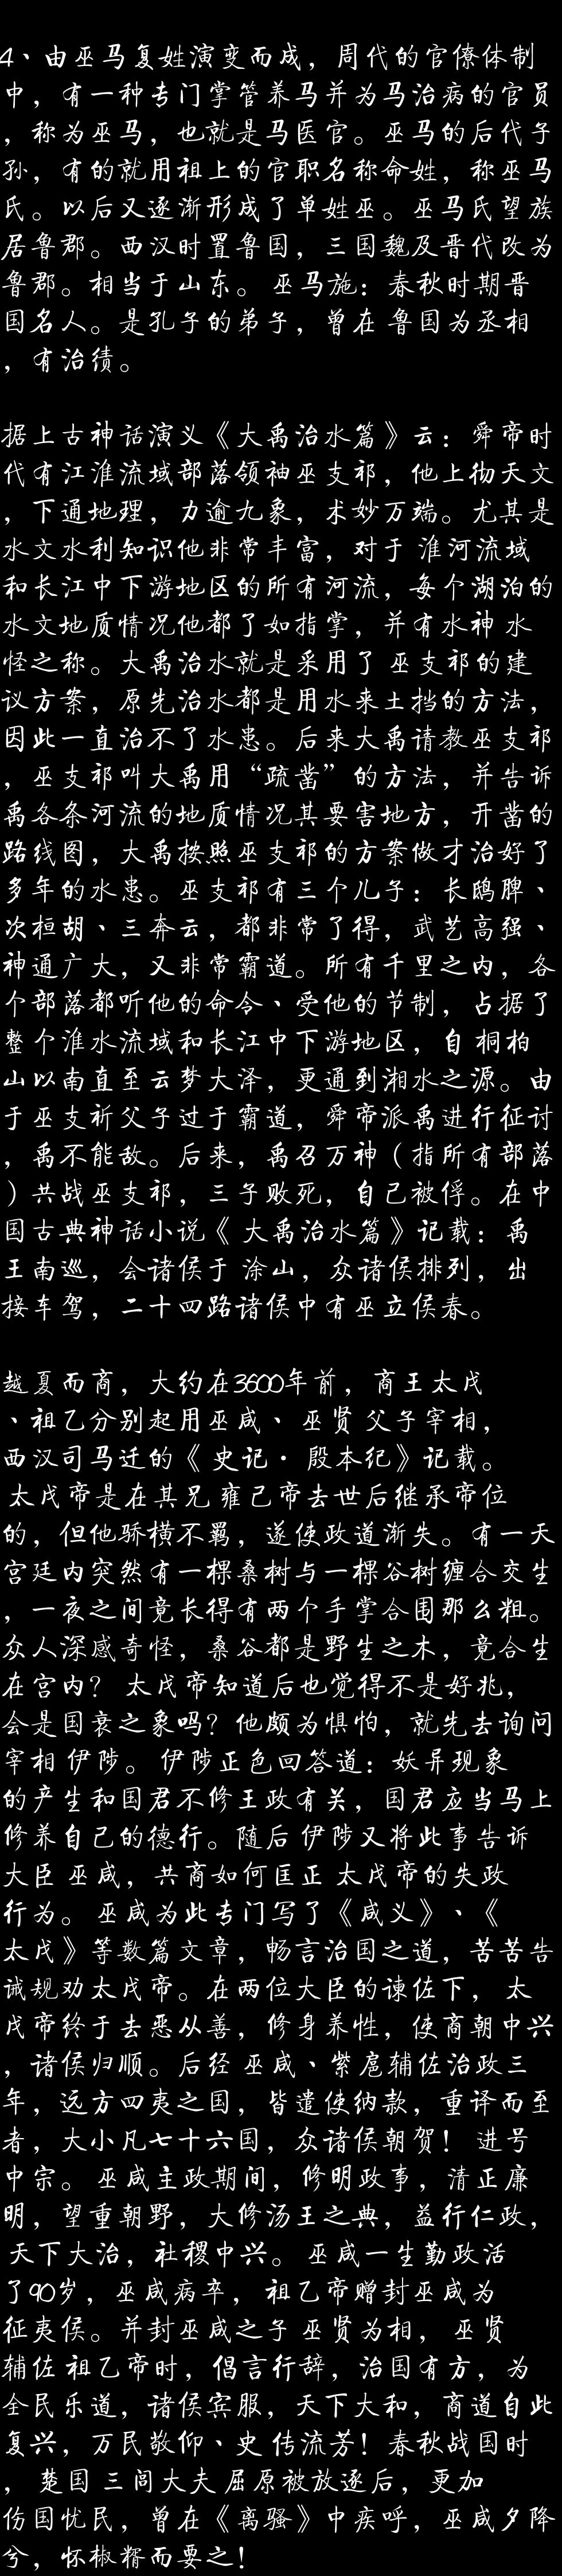 4、由巫马复姓演变而成，周代的官僚体制
中，有一种专门掌管养马并为马治病的官员
，称为巫马，也就是马医官。巫马的后代子
孙，有的就用祖上的官职名称命姓，称巫马
氏。以后又逐渐形成了单姓巫。巫马氏望族
居鲁郡。西汉时置鲁国，三国魏及晋代改为
鲁郡。相当于山东。 巫马施：春秋时期晋
国名人。是孔子的弟子，曾在 鲁国为丞相
，有治绩。
据上古神话演义《大禹治水篇》云：舜帝时
代有江淮流域部落领袖巫支祁，他上彻天文
，下通地理，力逾九象，术妙万端。尤其是
水文水利知识他非常丰富，对于 淮河流域
和长江中下游地区的所有河流，每个湖泊的
水文地质情况他都了如指掌，并有水神 水
怪之称。大禹治水就是采用了 巫支祁的建
议方案，原先治水都是用水来土挡的方法，
因此一直治不了水患。后来大禹请教巫支祁
，巫支祁叫大禹用“疏凿”的方法，并告诉
禹各条河流的地质情况其要害地方，开凿的
路线图，大禹按照巫支祁的方案做才治好了
多年的水患。巫支祁有三个儿子：长鸱脾、
次桓胡、三奔云，都非常了得，武艺高强、
神通广大，又非常霸道。所有千里之内，各
个部落都听他的命令、受他的节制，占据了
整个淮水流域和长江中下游地区，自 桐柏
山以南直至云梦大泽，更通到湘水之源。由
于巫支祈父子过于霸道，舜帝派禹进行征讨
，禹不能敌。后来，禹召万神（指所有部落
）共战巫支祁，三子败死，自己被俘。在中
国古典神话小说《 大禹治水篇》记载：禹
王南巡，会诸侯于 涂山，众诸侯排列，出
接车驾，二十四路诸侯中有巫立侯春。
越夏而商，大约在3600年前，商王太戊
、祖乙分别起用巫咸、 巫贤 父子宰相，
西汉司马迁的《 史记· 殷本纪》记载。
太戊帝是在其兄 雍己帝去世后继承帝位
的，但他骄横不羁，遂使政道渐失。有一天
宫廷内突然有一棵桑树与一棵谷树缠合交生
，一夜之间竟长得有两个手掌合围那么粗。
众人深感奇怪，桑谷都是野生之木，竟合生
在宫内？ 太戊帝知道后也觉得不是好兆，
会是国衰之象吗？他颇为惧怕，就先去询问
宰相 伊陟。 伊陟正色回答道：妖异现象
的产生和国君不修王政有关，国君应当马上
修养自己的德行。随后 伊陟又将此事告诉
大臣 巫咸，共商如何匡正 太戊帝的失政
行为。 巫咸为此专门写了《咸义》、《
太戊》等数篇文章，畅言治国之道，苦苦告
诫规劝太戊帝。在两位大臣的谏佐下， 太
戊帝终于去恶从善，修身养性，使商朝中兴
，诸侯归顺。后经 巫咸、紫扈辅佐治政三
年，远方四夷之国，皆遣使纳款，重译而至
者，大小凡七十六国，众诸侯朝贺！ 进号
中宗。 巫咸主政期间，修明政事，清正廉
明，望重朝野，大修汤王之典，益行仁政，
天下大治，社稷中兴。 巫咸一生勤政活
了90岁，巫咸病卒， 祖乙帝赠封巫咸为
征夷侯。并封巫咸之子 巫贤为相， 巫贤
辅佐 祖乙帝时，倡言行辞，治国有方，为
全民乐道，诸侯宾服，天下大和，商道自此
复兴，万民敬仰、史 传流芳！春秋战国时
， 楚国 三闾大夫 屈原被放逐后，更加
伤国忧民，曾在《离骚》中疾呼，巫咸夕降
兮，怀椒糈而要之！